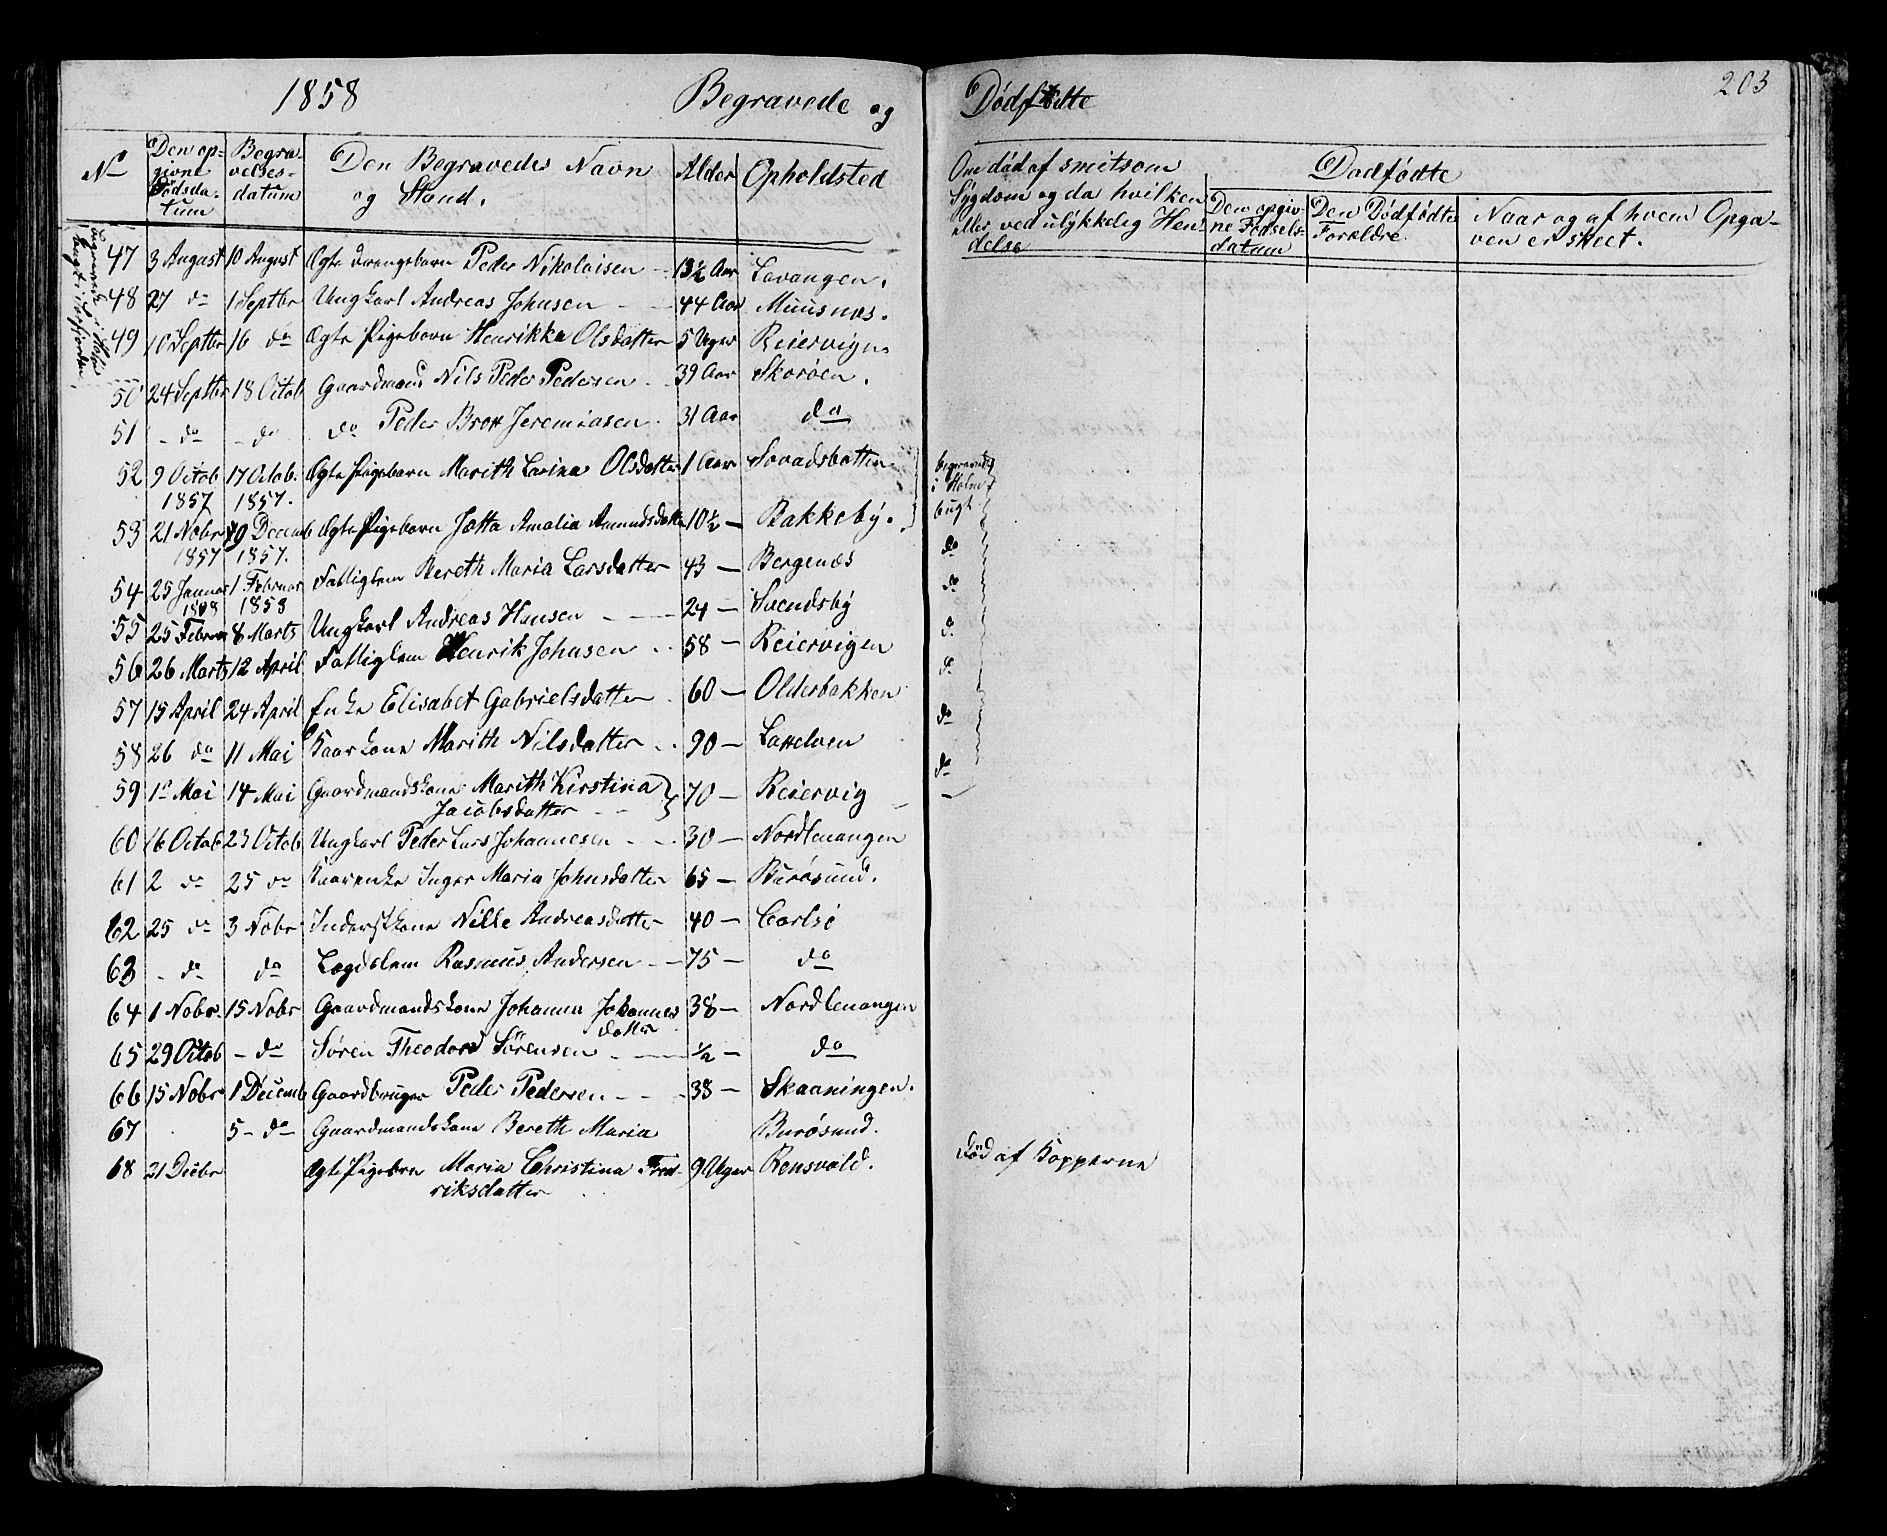 1858 Begravede og Dødfødte 203
No Den opgivne Dødsdatum Begravelsesdatum Den Begravedes Navn og Stand. Alder Opholdsted Om død af smitsom Sygdom og da hvilken eller ved ulykkelig Hendelse Dødfødte
Den opgivne Fødselsdatum Den Dødfødtes Forældre. Naar og af hvem Opgaven er skeet.
47 3 August 10 August Ægte Drengebarn Peder Nikolaisen 13½ Aar Lavangen.
48 27 do 1 Septbr Ungkarl Andreas Johnsen 44 Aar Muusnæs.
49 10 Septbr 16 do Ægte Pigebarn Henrikka Olsdatter 5 Uger Reiervign
50 24 Septbr 18 Octob Gaardmand Nils Peder Pedersen 39 Aar Skorøen.
51 - do - do do Peder Brox Jeremiasen 31 Aar do
52 9 Octob 1857 17 Octob. 1857. Ægte Pigebarn Marith Larina Olsdatter 1 Aar begravede i Holmebugt
53 21 Nobr 1857 19 Decemb 1857. Ægte Pigebarn Jætta Amalia Amundsdatter 10½ — Bakkeby.
54 25 Januar 1858 1 Februar 1858 Fattiglem Bereth Maria Larsdatter 43 — Bergenæs do
55 25 Februar 8 Marts Ungkarl Andreas Hansen 24 — Svendsby do
56 26 Marts 12 April Fattiglem Henrik Johnsen 58 — Reiervigen do
57 15 April 24 April Enke Elisabet Gabrielsdatter 60 — Olderbakken do
58 26 do 11 Mai Kaarkone Marith Nilsdatter 90 — do
59 1o Mai 14 Mai Gaardmandskone Marith Kirstina 70 — Reiervig do
Jacobsdatter
60 16 Octob 23 Octob Ungkarl Peder Lars Johannesen 30 — Nordlenangen
61 2 do 25 do Kaarenke Inger Maria Johnsdatter 65 — Burøsund.
62 25 do 3 Nobr Inderstkone Nille Andreasdatter 40 — Carlsø
63 - do do Lægdslem Rasmus Andersen 75 — do
64 1 Nobr. 15 Nobr Gaardmandskone Johanna Johannes 38 — Nordlenangen
datter
65 29 Octob - do Søren Theodor Sørensen ½ — do
66 15 Nobr 1 Decemb Gaardbruger Peder Pedersen 38 — Skaaningen.
67 5 - do Gaardmandskone Bereth Maria Burøsund.
68 21 Decbr Ægte Pigebrn Maria Christina Fred- 9 Uger Rensvold. Død af Kopperne
riksdatter